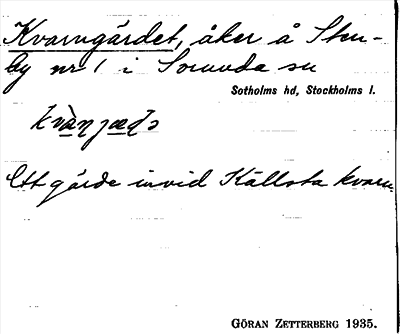 Kvarngärdet, åker å Sten-
by nr 1 i Sorunda sn
Sotholms hd, Stockholms l.
Ett gärde invid Källsta kvarn
GÖRAN ZETTERBERG 1935.